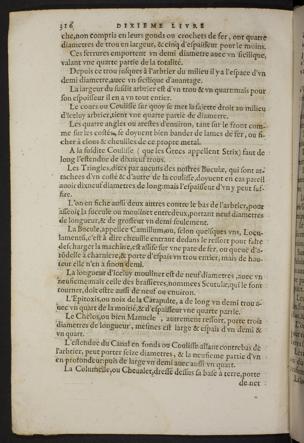 316 DIXIEME LIVRE
che, non compris en leurs gonds ou crochets de fer, ont quatre
diametres de trou en largeur, & cinq d'espaisseur pour le moins.
Ces ferrures emportent vn demi diametre auec vn sicilique,
valant vne quatre partie de la totalité.
Depuis ce trou jusques à l'arbrier du milieu il y a l'espace d'vn
demi diametre, auec vn sicilique d'auantage.
La largeur du susdit arbrier est d'vn trou & vn quart: mais pour
son espaisseur il en a vn tout entier.
Le cours ou Coulisse sur quoy se met la sajette droit au milieu
d'iceluy arbrier, tient vne quatre partie de diametre.
Les quatre angles ou arestes d'enuiron, tant sur le front comme
me sur les costez, se doyuent bien bander de lames de fer, ou fi-
cher à clous & cheuilles de ce propre metal.
A la susdite Coulisse ( que les Grecs appellent Strix) faut de
long l'estendue de dixneuf trous.
Les Tringles, dites par aucuns des nostres Bucule, qui sont at-
tachees d'vn costé & d'autre de la coulisse, doyuent en cas pareil
auoir dixneuf diametres de long: mais l'espaisseur d'vn y peut suf-
fire.
L'on en fiche aussi deux autres contre le bas de l'arbrier, pour
asseoir la sucule ou moulinet entredeux, portant neuf diametres
de longueur, & de grosseur vn demi seulement.
La Bucule, appellee Camillum, ou, selon quelques vns, Locu-
lamentũ, c'est à dire cheuille entrant dedans le ressort pour faire
descharger la machine, est assise sur vne pate de fer, ou queue d'a-
rõdelle à charniere, & porte d'espais vn trou entier, mais de hau-
teur elle n'en a sinon demi.
La longueur d'iceluy moulinet est de neuf diametres, auec vn
neufiesme: mais celle des brassieres, nommees Scutula, qui le font
tourner, doit estre aussi de neuf ou enuiron.
L'Epitoxis, ou noix de la Catapulte, a de long vn demi trou a-
uec vn quart de la moitié, & d'espaisseur vne quatre partie.
Le Chelon, ou bien Manucle, autrement ressort, porte trois
diametres de longueur, mesines est large & espais d'vn demi &
vn quart.
L'estendue du Canal en fonds ou Coulisse allant contrebas de
l'arbrier, peut porter seize diametres, & la neufieme partie d'vn
en profondeur: puis de large vn demi auec aussi vn quart.
La Columelle, ou Cheualet, dressé dessus sa base à terre, porte
de net